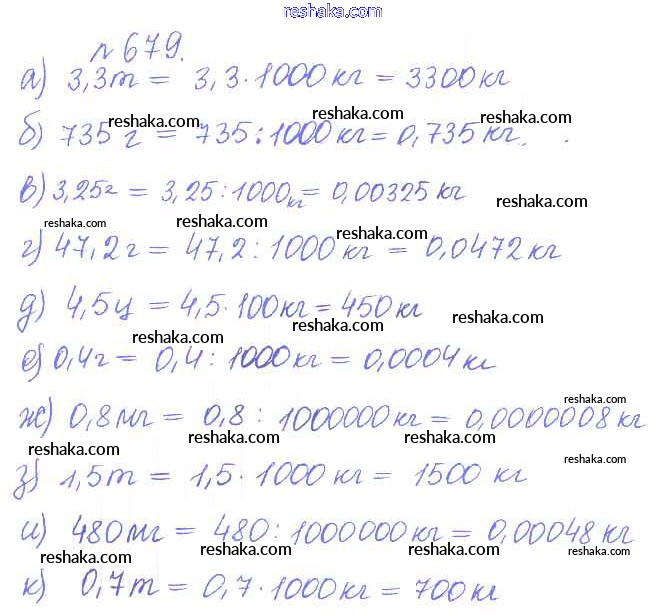 reshaka.com
№679.
а) 3,3т = 3,3·1000кг = 3300кг
reshaka.com reshaka.com reshaka.com
б) 735г = 735:1000кг = 0,735кг.
в) 3,25г = 3,25:1000кг = 0,00325 кг
reshaka.com reshaka.com reshaka.com
reshaka.com
г) 47,2г = 47,2:1000кг = 0,0472кг
д) 4,5ц = 4,5·100кг = 450кг
reshaka.com
reshaka.com reshaka.com
е) 0,4г = 0,4:1000кг = 0,0004кг
reshaka.com
ж) 0,8мг = 0,8:1000000кг = 0,0000008кг
reshaka.com reshaka.com reshaka.com
reshaka.com
з) 1,5т = 1,5·1000кг = 1500 кг
и) 480мг = 480:1000000кг = 0,00048кг
reshaka.com reshaka.com reshaka.com reshaka.com
к) 0,7т = 0,7·1000кг = 700кг